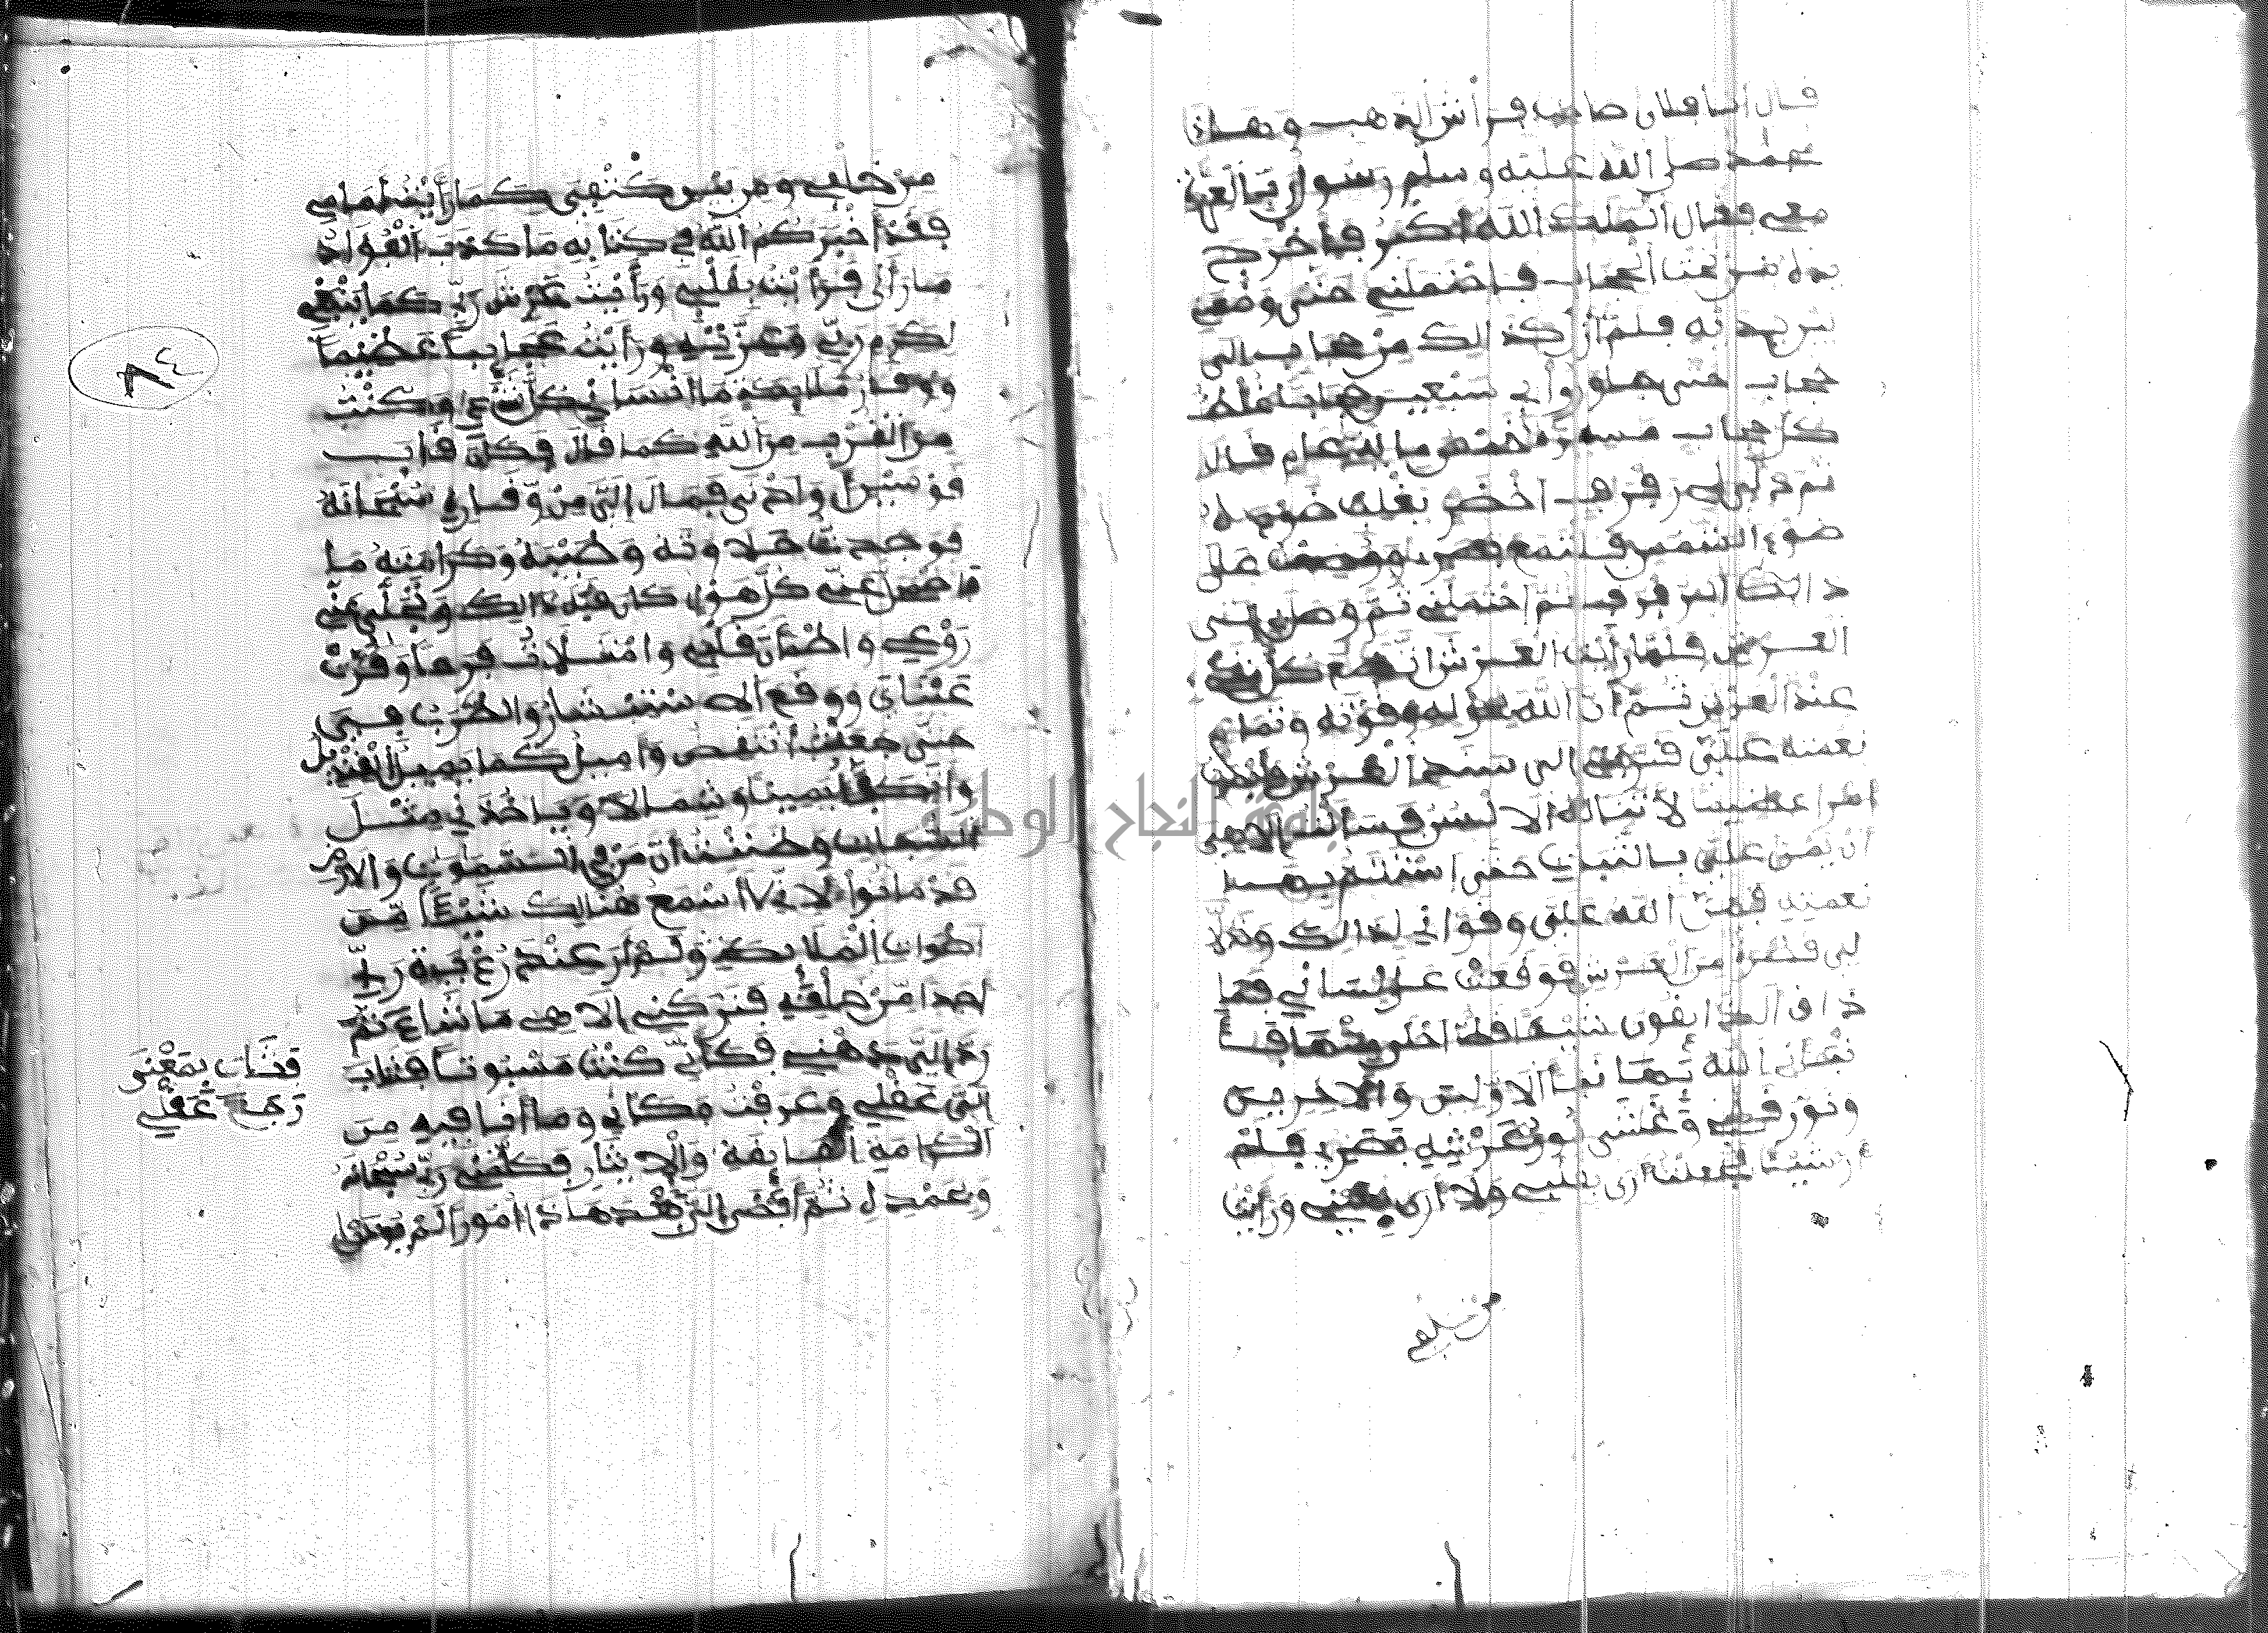 قال أنا فلان صاحب فراش الذهب وهذا
محمد صلى الله عليه وسلم رسول رب العزة
معي فقال الملك الله أكبر فأخرج
يده من تحت الحجاب فاحتملني حتى وضعني
بين يديه فلم أزل كذالك من حجاب إلى
حجاب حتى جاوزوا بي سبعين حجابا غلظ
كل حجاب مسيرة خمس مائة عام قال
ثم دلي لي رفرف أخضر يغلب ضوءه
ضوء الشمس فلتمع بصري ووضعت على
ذالك الرفرف ثم احتملني ثم وصل إلى
العرش فلما رأيت العرش اتضع كل شيء
عند العرش ثم أن الله بحوله وقوته وتمام
نعمته علي قربني إلى سند العرش
أمرا عظيما لا تناله الألسن فسألت إلاهي
أن يمن علي بالثبات حتى استتم
نعمته فمن الله علي وقواني لذالك
لي قطرة من العرش فوقعت على لساني فما
ذاق الذائقون شيئا قط أحلى منها
نبأني الله بها نبأ الأولين والآخرين
ونور قلبي وغشى نور عرشه بصري فلم
أر شيئا فجعلت أرى بقلبي ولا أرى بعيني ورأيت
من خلفي
من خلفي ومن بين كتفي كما رأيت أمامي
فقد أخبركم الله في كتابه ما كذب الفؤاد
ما رأى فرأيت بقلبي ورأيت عرش ربي كما ينبغي
لكرم ربي وعزته ورأيت عجائبا عظيما
ما أنساني كل شيء وكنت
من القرب من الله كما قال فكان قاب
قوسين أو أدنى فمال إلي من وقار ربي سبحانه
فوجدت حلاوته وطيبه وكرامته ما
فاضمحل عني كل هول كان قبل ذالك وتجلى عني
روعي واطمأن قلبي وامتلات فرحا وقرت
عيناي ووقع الاستبشار والطرب في
حتى جعلت أنتفض وأميل كما يميل القنديل
وأتكفأ يمينا وشمالا ويأخذني مثل
السحاب وظننت أن من في السموات والارض
قد ماتوا لاني لا أسمع هنالك شيئا من
أصوات الملائكة ولم أر عند رؤية ربي
أحدا من خلقه فتركني إلاهي ما شاء ثم
رد إلي ذهني فكأني كنت مسبوتا فثاب
إلي عقلي وعرفت مكاني وما أنا فيه من
الكرامة الفايقة والايثار فكلمني ربي سبحانه
وبحمده ثم أفضى إلي بعد هاذا أمورا لم
فثاب بمعنى
رجع عقلي
٨٤
جامعة النجاح الوطنية